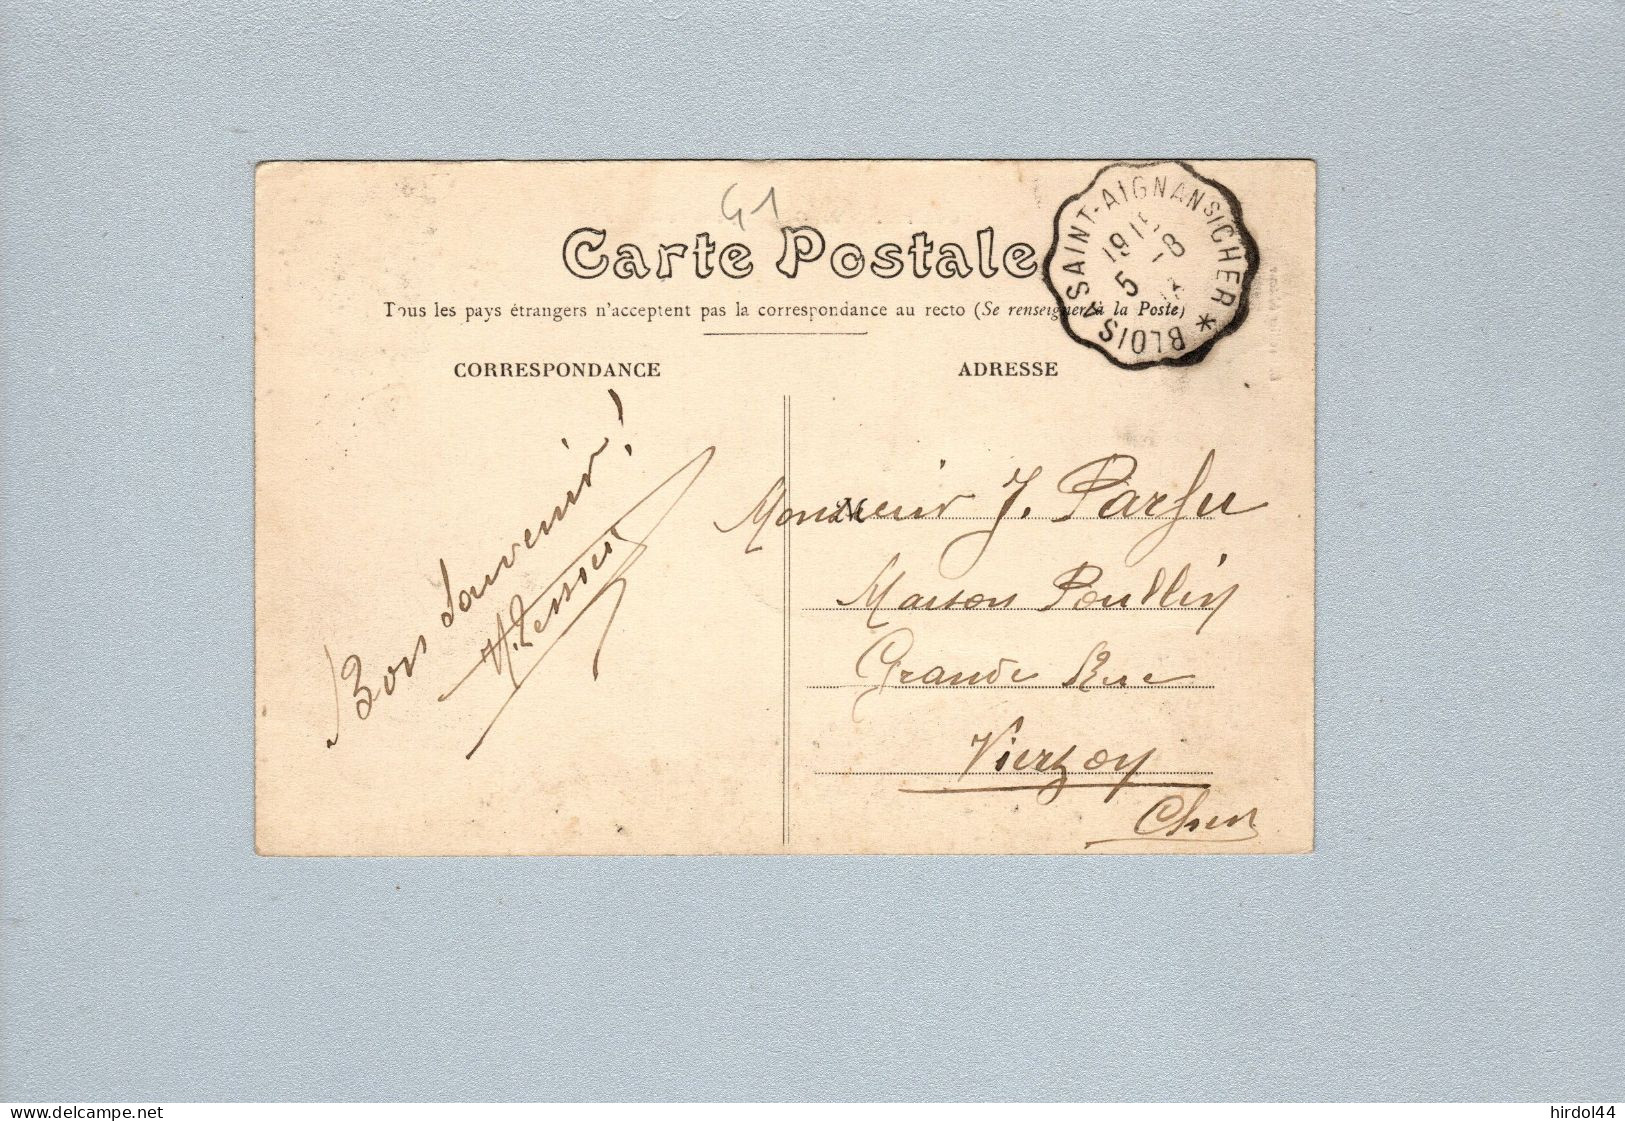 41
Carte Postale
Tous les pays étrangers n'acceptent pas la correspondance au recto (Se renseigner à la Poste)
BLOIS A SAINT-AIGNAN S/CHER *
5 - 8
CORRESPONDANCE
ADRESSE
Bon Souvenir !
Monsieur J. Parfu
Maison Poullin
Grande Rue
Vierzon
Cher
www.delcampe.net
hirdol44